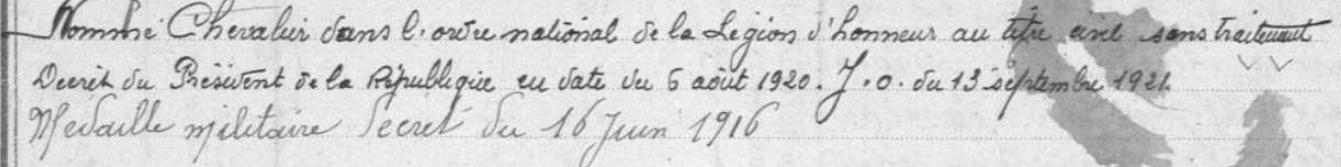 Nommé Chevalier dans l'ordre national de la Légion d'honneur au titre civil sans traitement
Decret du Président de la République en date du 6 août 1920. J.O. du 13 septembre 1921.
Medaille militaire Decret du 16 Juin 1916